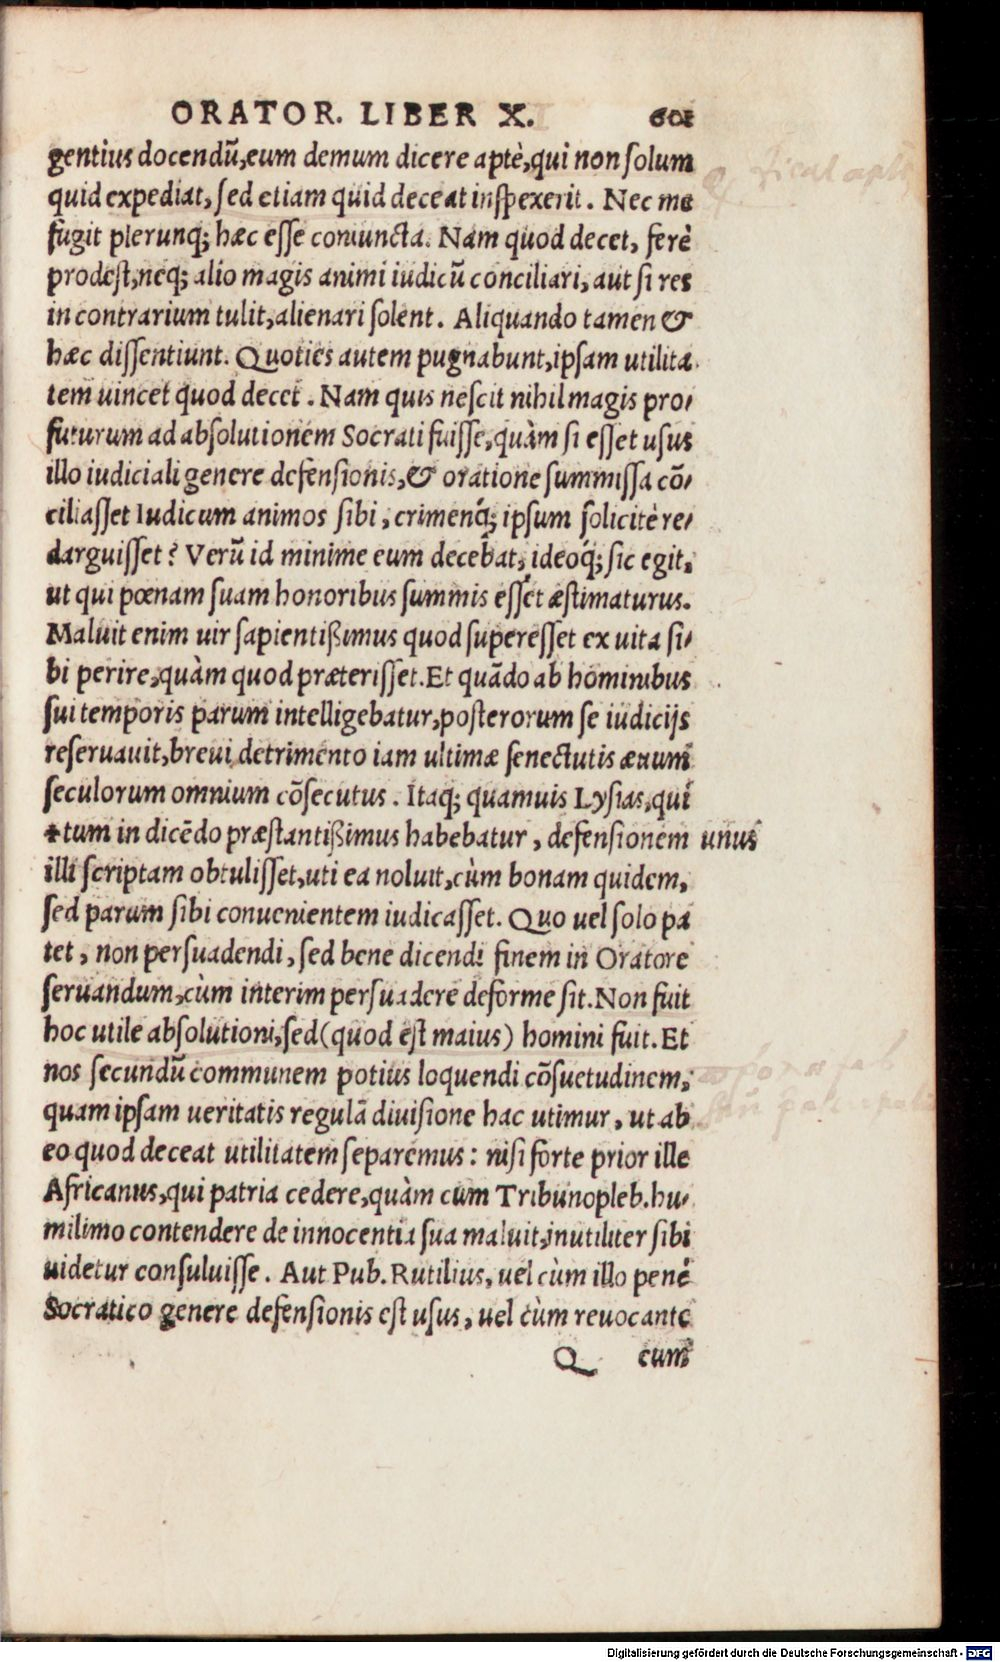 ORATOR. LIBER X. 601
gentius docendū, eum demum dicere aptè, qui non ſolum
quid expediat, ſed etiam quid deceat inſpexerit. Nec me
fugit plerunq; hæc eſſe coniuncta. Nam quod decet, ferè
prodeſt, neq; alio magis animi iudicū conciliari, aut ſi res
in contrarium tulit, alienari ſolent. Aliquando tamen &
hæc diſſentiunt. Quoties autem pugnabunt, ipſam utilita
tem uincet quod decet. Nam quis neſcit nihil magis pro/
futurum ad abſolutionem Socrati fuiſſe, quàm ſi eſſet uſus
illo iudiciali genere defenſionis, & oratione ſummiſſa cō/
ciliaſſet Iudicum animos ſibi, crimenq́; ipſum ſolicitè re/
darguiſſet? Verū id minime eum decebat, ideoq́; ſic egit,
ut qui pœnam ſuam honoribus ſummis eſſet æſtimaturus.
Maluit enim uir ſapientißimus quod ſupereſſet ex uita ſi/
bi perire, quàm quod præteriſſet. Et quādo ab hominibus
ſui temporis parum intelligebatur, poſterorum ſe iudicijs
reſeruauit, breui detrimento iam ultimæ ſenectutis æuum
ſeculorum omnium cōſecutus. Itaq; quamuis Lyſias, qui
✝tum in dicēdo præſtantißimus habebatur, defenſionem unus
illi ſcriptam obtuliſſet, uti ea noluit, cùm bonam quidem,
ſed parum ſibi conuenientem iudicaſſet. Quo uel ſolo pa
tet, non perſuadendi, ſed bene dicendi finem in Oratore
ſeruandum, cùm interim perſuadere deforme ſit. Non fuit
hoc utile abſolutioni, ſed (quod eſt maius) homini fuit. Et
nos ſecundū communem potius loquendi cōſuetudinem,
quam ipſam ueritatis regulā diuiſione hac utimur, ut ab
eo quod deceat utilitatem ſeparemus: niſi forte prior ille
Africanus, qui patria cedere, quàm cum Tribuno pleb. hu/
milimo contendere de innocentia ſua maluit, inutiliter ſibi
uidetur conſuluiſſe. Aut Pub. Rutilius, uel cùm illo penè
Socratico genere defenſionis eſt uſus, uel cùm reuocante
Q cum
Digitalisierung gefördert durch die Deutsche Forschungsgemeinschaft - DFG